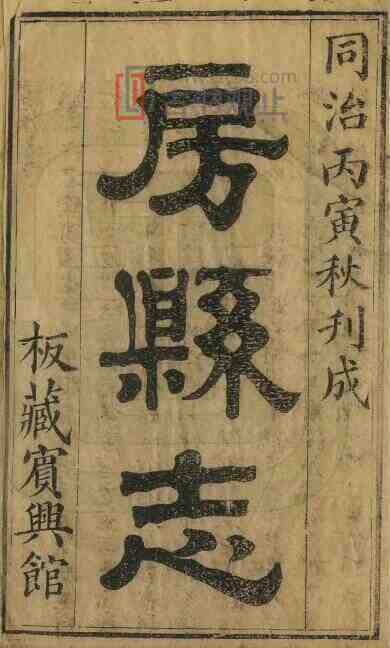 同治丙寅秋刋成
房縣志
板藏賓興館